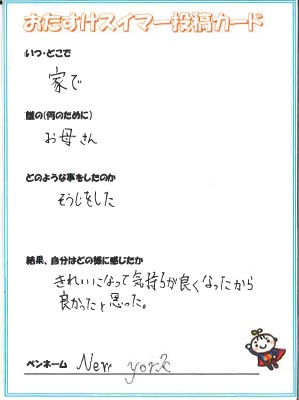 おたすけスイマー投稿カード
いつ・どこで
家で
誰の(何のために)
お母さん
どのような事をしたのか
そうじをした
結果、自分はどの様に感じたか
きれいになって気持ちが良くなったから
良かったと思った。
ペンネーム New york